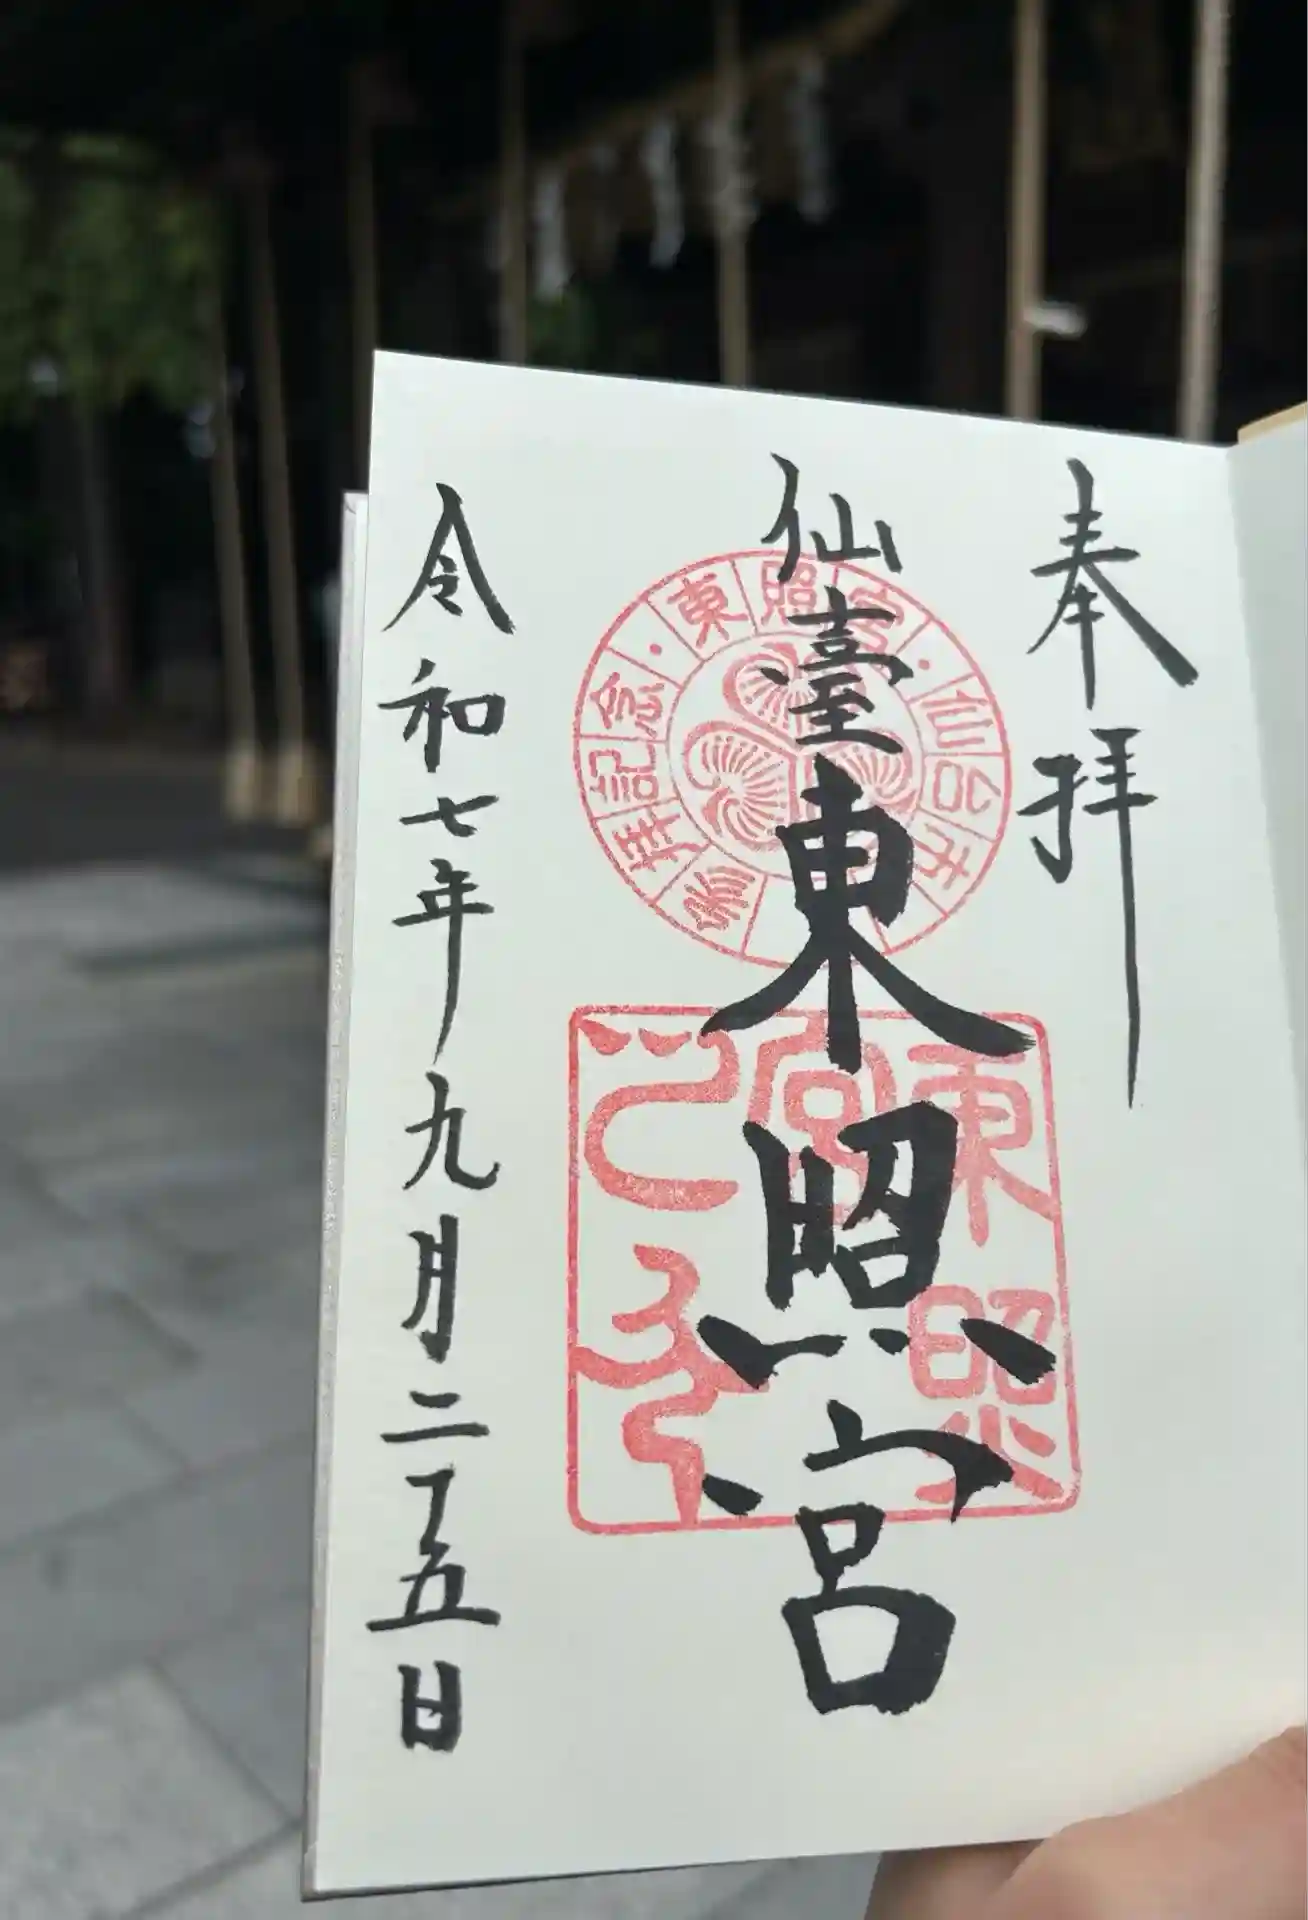 奉拝
仙臺東照宮
令和七年九月二十五日
東照宮・仙台市
参拝記念・
東照宮